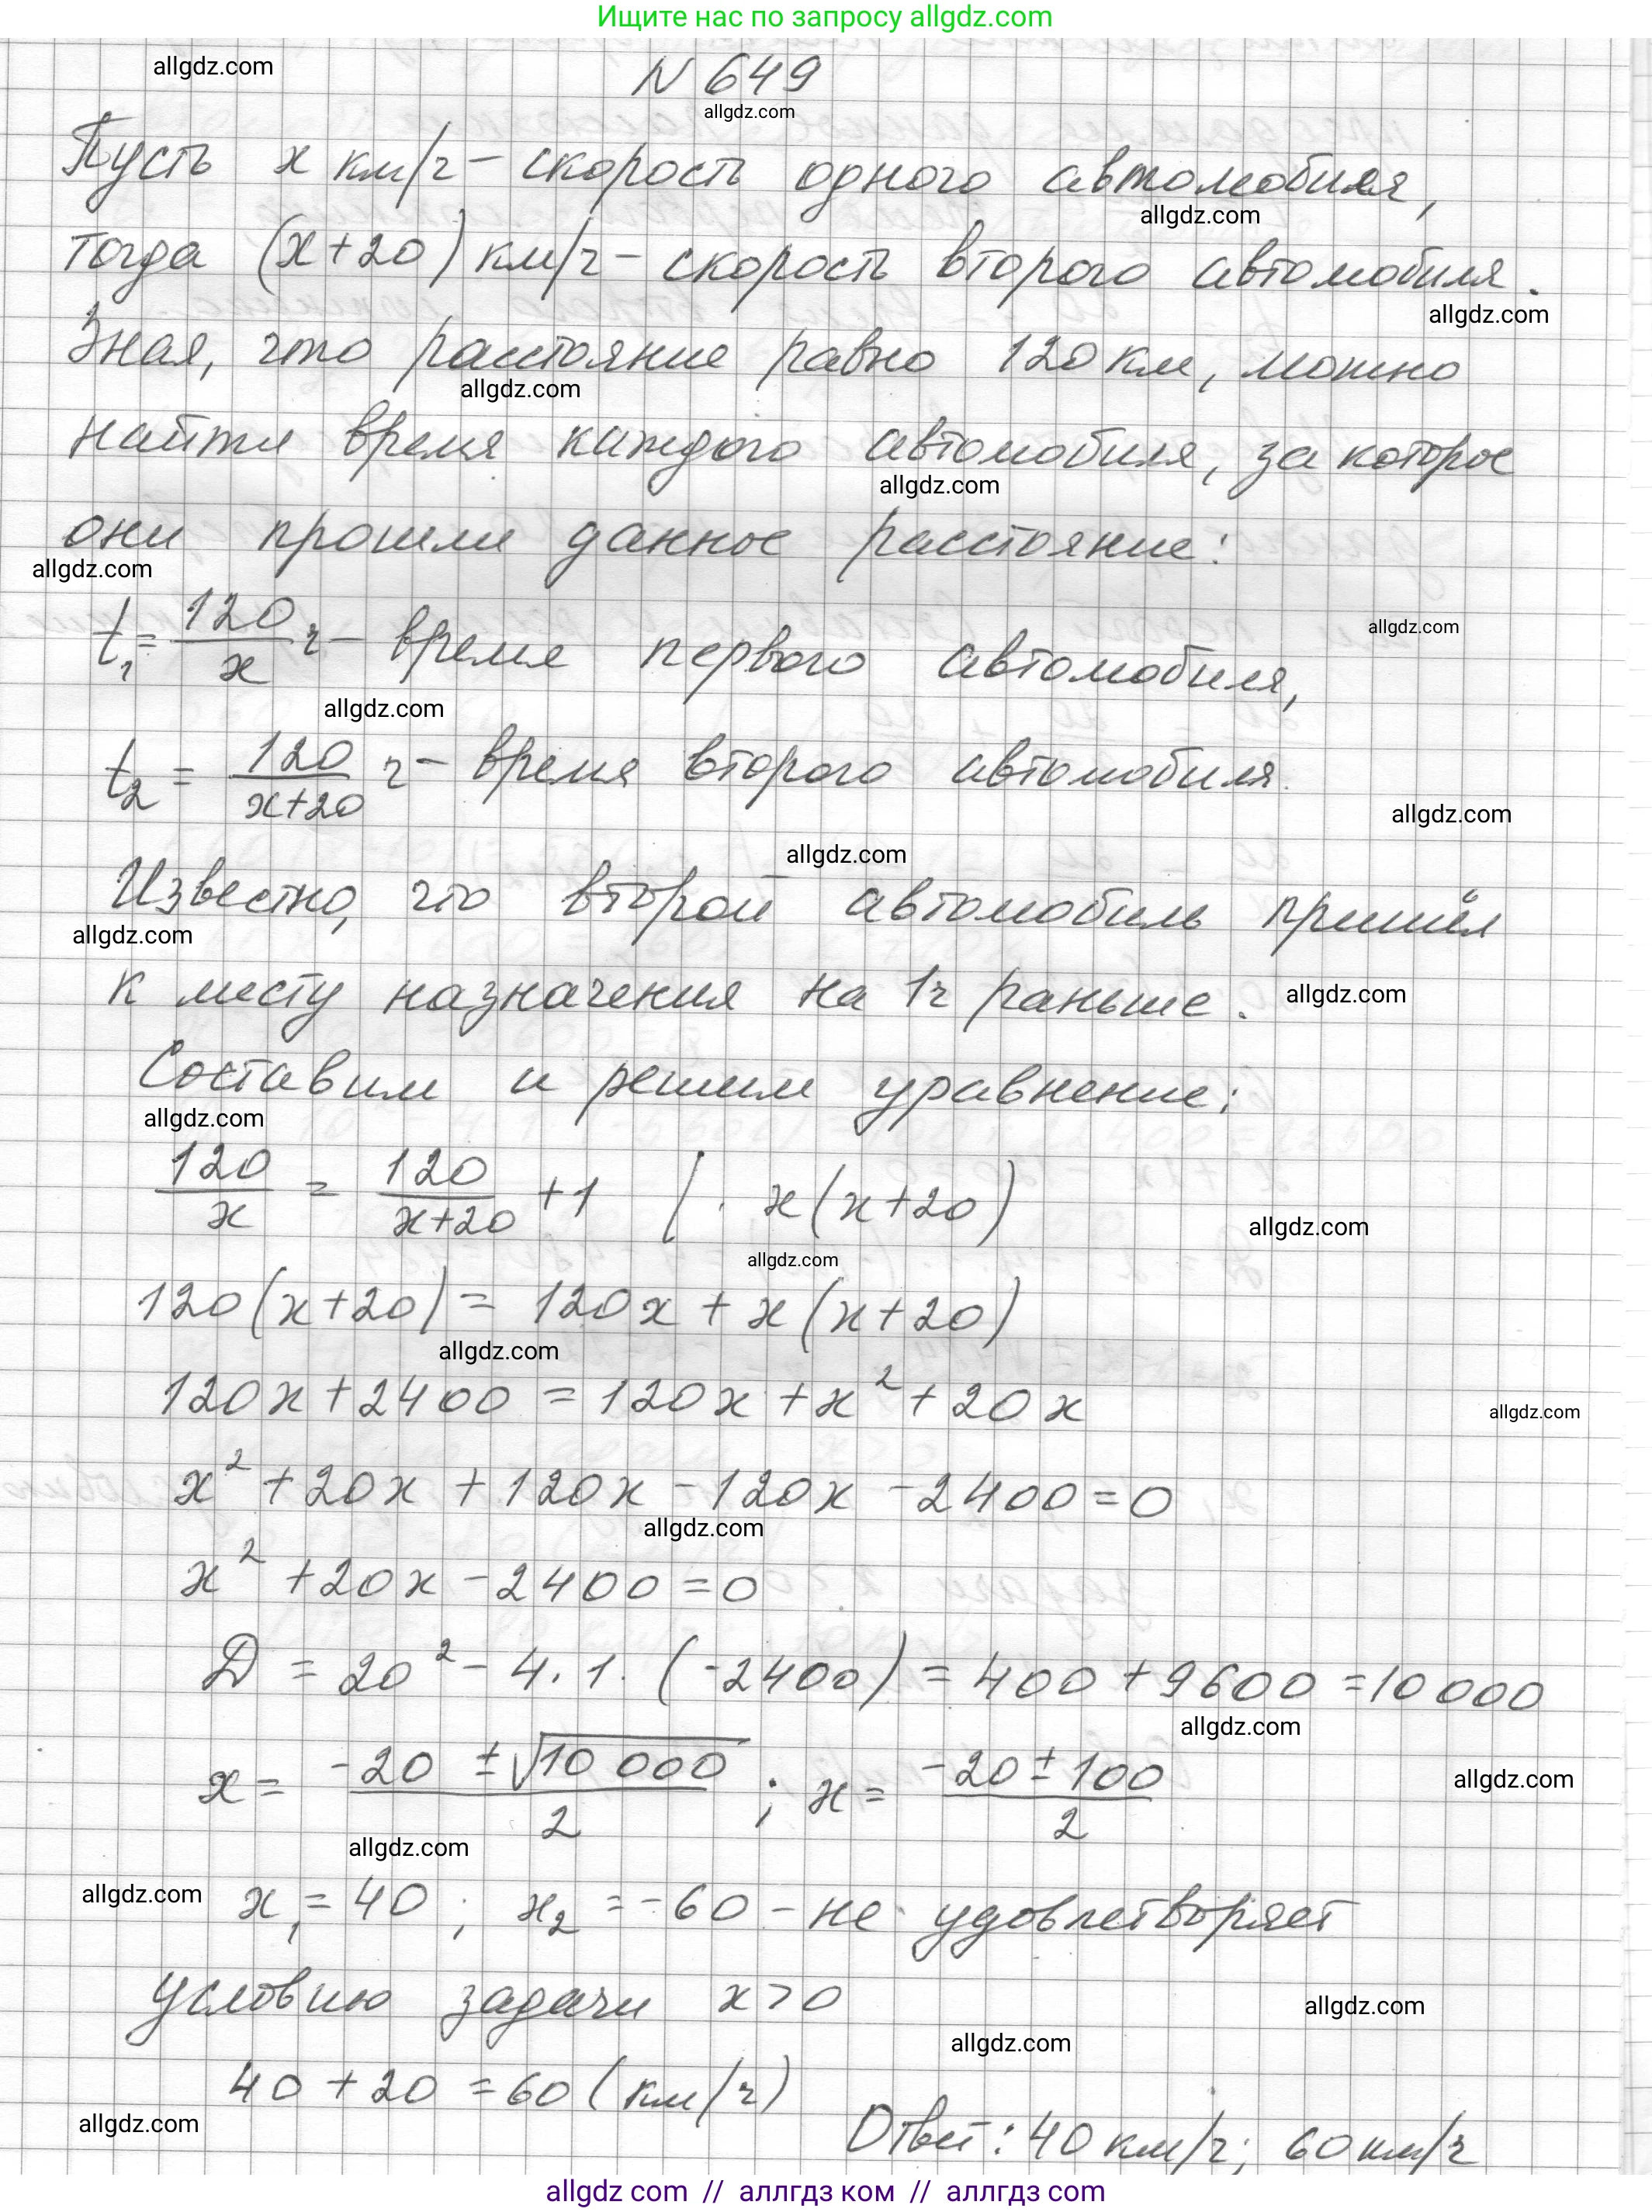 Ищите нас по запросу allgdz.com
allgdz.com
N 649
allgdz.com
Пусть x км/ч – скорость одного автомобиля,
allgdz.com
тогда (x+20) км/ч – скорость второго автомобиля.
allgdz.com
Зная, что расстояние равно 120 км, можно
allgdz.com
найти время каждого автомобиля, за которое
allgdz.com
они прошли данное расстояние:
allgdz.com
t₁ = 120/x ч – время первого автомобиля,
allgdz.com
allgdz.com
t₂ = 120/(x+20) ч – время второго автомобиля.
allgdz.com
allgdz.com
Известно, что второй автомобиль пришёл
allgdz.com
к месту назначения на 1ч раньше.
allgdz.com
Составим и решим уравнение:
allgdz.com
120/x = 120/(x+20) + 1 | · x(x+20)
allgdz.com
allgdz.com
120(x+20) = 120x + x(x+20)
allgdz.com
120x + 2400 = 120x + x² + 20x
allgdz.com
x² + 20x + 120x – 120x – 2400 = 0
allgdz.com
x² + 20x – 2400 = 0
D = 20² – 4·1·(-2400) = 400 + 9600 = 10 000
allgdz.com
x = (-20 ± √10 000)/2 ; x = (-20 ± 100)/2
allgdz.com
allgdz.com
allgdz.com
x₁ = 40 ; x₂ = -60 – не удовлетворяет
условию задачи x > 0
allgdz.com
allgdz.com
40 + 20 = 60 (км/ч)
allgdz.com
Ответ: 40 км/ч; 60 км/ч
allgdz com // аллгдз ком // аллгдз com